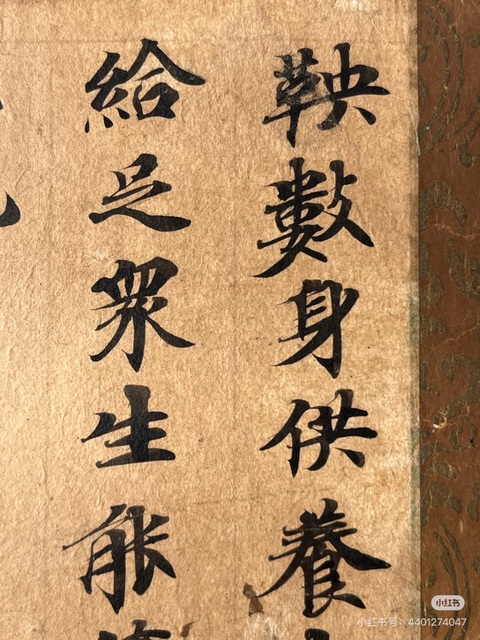 鞅數身供養
給足眾生能
小红书
小红书号：4401274047